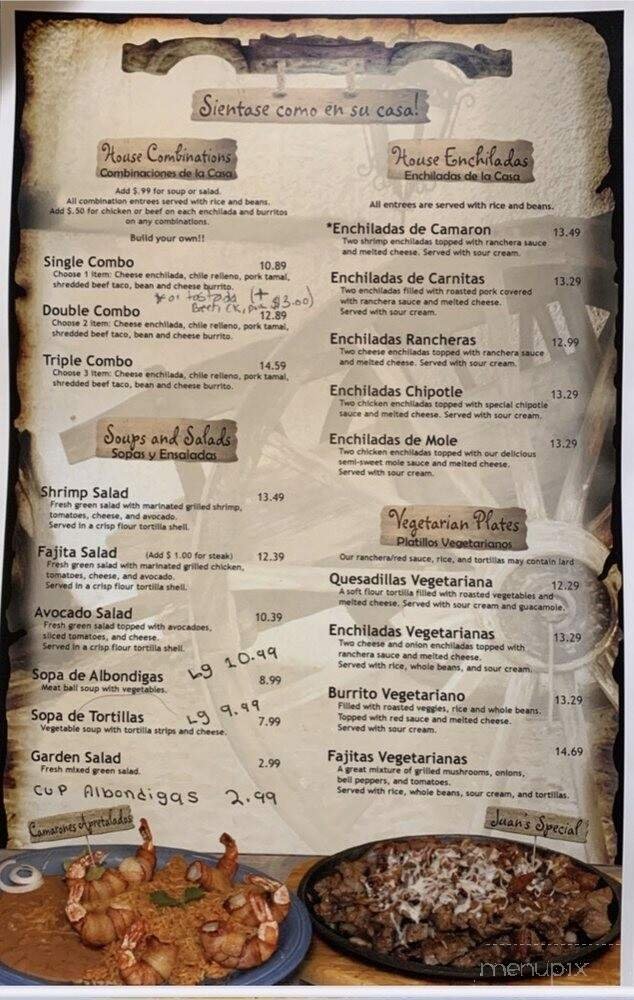 Sientase como en su casa!
House Combinations
Combinaciones de la Casa
Add $.99 for soup or salad.
All combination entrees served with rice and beans.
Add $.50 for chicken or beef on each enchilada and burritos
on any combinations.
Build your own!!
Single Combo 10.89
Choose 1 item: Cheese enchilada, chile relleno, pork tamal,
shredded beef taco, bean and cheese burrito.
* or tostada (+
$3.00)
Double Combo 12.89
Choose 2 item: Cheese enchilada, chile relleno, pork tamal,
shredded beef taco, bean and cheese burrito.
Triple Combo 14.59
Choose 3 item: Cheese enchilada, chile relleno, pork tamal,
shredded beef taco, bean and cheese burrito.
Soups and Salads
Sopas y Ensaladas
Shrimp Salad 13.49
Fresh green salad with marinated grilled shrimp,
tomatoes, cheese, and avocado.
Served in a crisp flour tortilla shell.
Fajita Salad (Add $ 1.00 for steak) 12.39
Fresh green salad with marinated grilled chicken,
tomatoes, cheese, and avocado.
Served in a crisp flour tortilla shell.
Avocado Salad 10.39
Fresh green salad topped with avocadoes,
sliced tomatoes, and cheese.
Served in a crisp flour tortilla shell.
Lg 10.99
Sopa de Albondigas 8.99
Meat ball soup with vegetables.
Lg 9.99
Sopa de Tortillas 7.99
Vegetable soup with tortilla strips and cheese.
Garden Salad 2.99
Fresh mixed green salad.
CUP Albondigas 2.99
House Enchiladas
Enchiladas de la Casa
All entrees are served with rice and beans.
*Enchiladas de Camaron 13.49
Two shrimp enchiladas topped with ranchera sauce
and melted cheese. Served with sour cream.
Enchiladas de Carnitas 13.29
Two enchiladas filled with roasted pork covered
with ranchera sauce and melted cheese.
Served with sour cream.
Enchiladas Rancheras 12.99
Two cheese enchiladas topped with ranchera sauce
and melted cheese. Served with sour cream.
Enchiladas Chipotle 13.29
Two chicken enchiladas topped with special chipotle
sauce and melted cheese. Served with sour cream.
Enchiladas de Mole 13.29
Two chicken enchiladas topped with our delicious
semi-sweet mole sauce and melted cheese.
Served with sour cream.
Vegetarian Plates
Platillos Vegetarianos
Our ranchera/red sauce, rice, and tortillas may contain lard
Quesadillas Vegetariana 12.29
A soft flour tortilla filled with roasted vegetables and
melted cheese. Served with sour cream and guacamole.
Enchiladas Vegetarianas 13.29
Two cheese and onion enchiladas topped with
ranchera sauce and melted cheese.
Served with rice, whole beans, and sour cream.
Burrito Vegetariano 13.29
Filled with roasted veggies, rice and whole beans.
Topped with red sauce and melted cheese.
Served with sour cream.
Fajitas Vegetarianas 14.69
A great mixture of grilled mushrooms, onions,
bell peppers, and tomatoes.
Served with rice, whole beans, sour cream, and tortillas.
Camarones Apretalados
Juan's Special
menupix